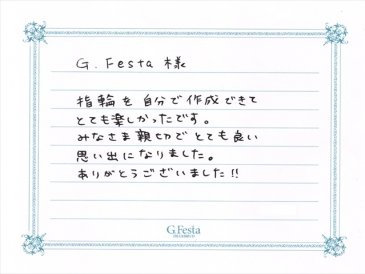 G. Festa 様
指輪を自分で作成できて
とても楽しかったです。
みなさま親切でとても良い
思い出になりました。
ありがとうございました!!
G.Festa